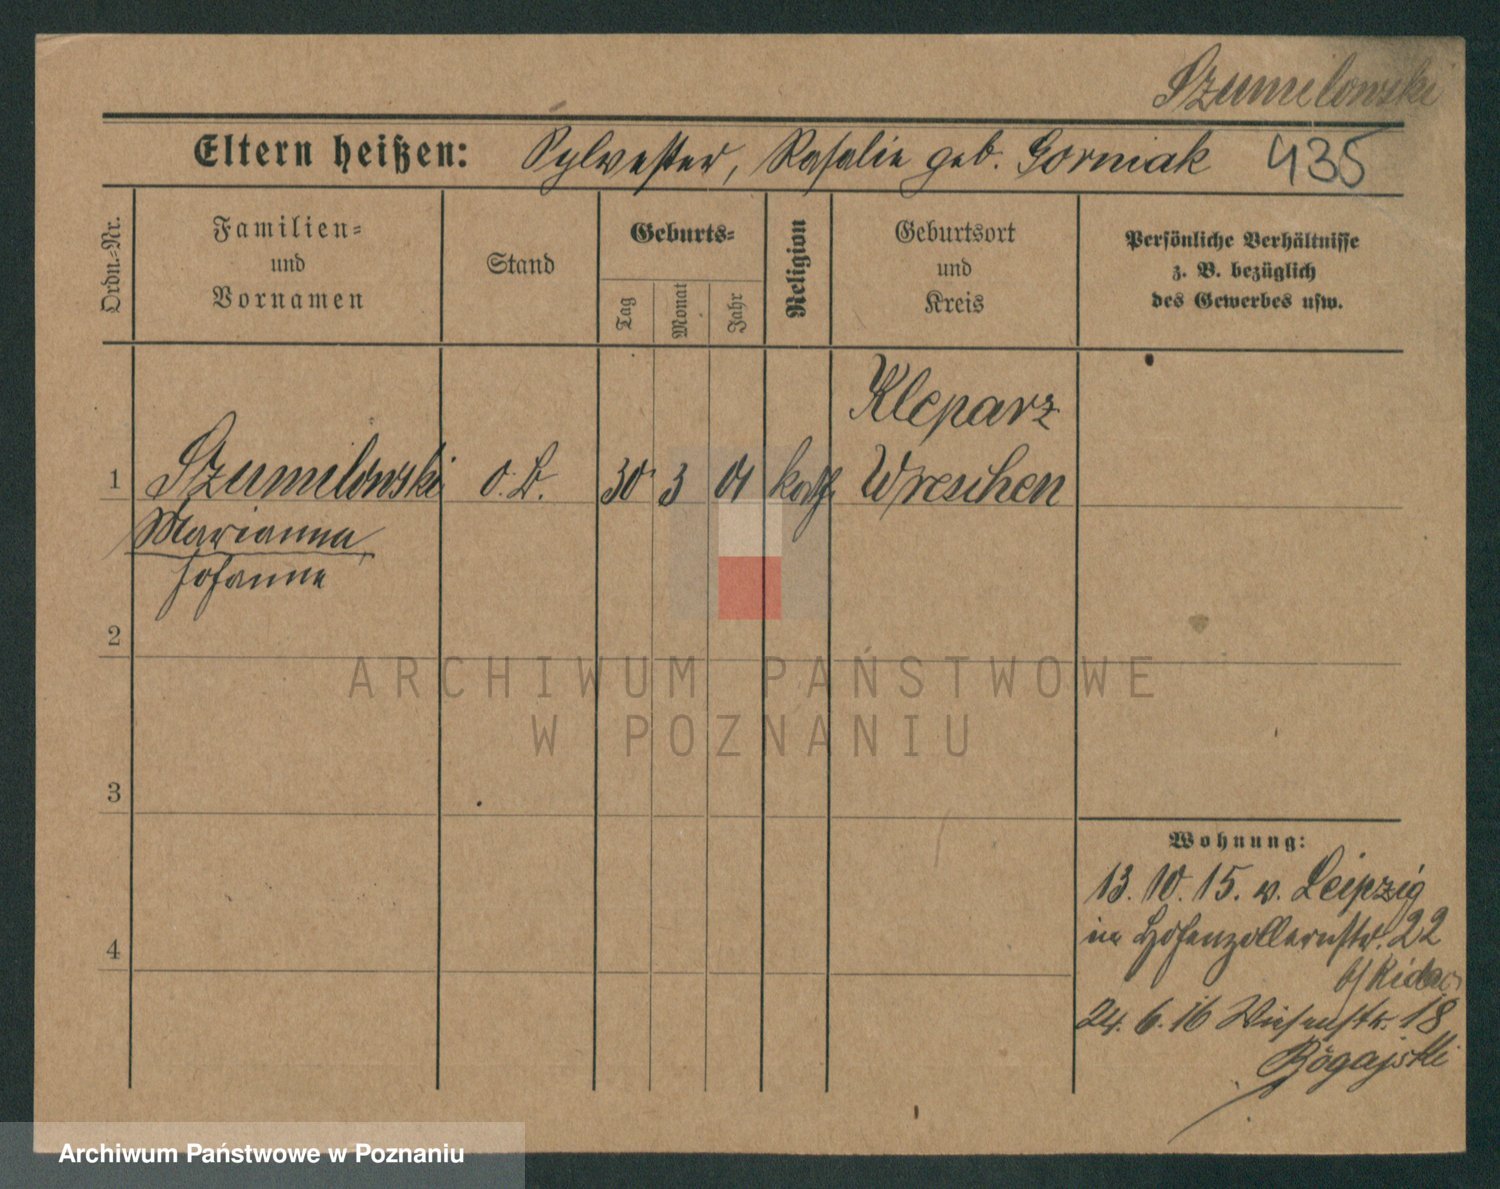 Szumilowski
Eltern heißen: Sylvester, Rosalie geb. Gorniak 435
Ordn.-Nr.
Familien-
und
Vornamen
Stand
Geburts-
Tag
Monat
Jahr
Religion
Geburtsort
und
Kreis
Persönliche Verhältnisse
z. B. bezüglich
des Gewerbes usw.
Kleparz
1 Szumilowski o. B. 30 3 01 kath. Wreschen
Marianna
Johanna
2
ARCHIWUM PAŃSTWOWE
W POZNANIU
3
Wohnung:
13. 10. 15. v. Leipzig
in Hohenzollernstr. 22
4
b/
24. 6. 16 Wiesenstr. 18
Archiwum Państwowe w Poznaniu